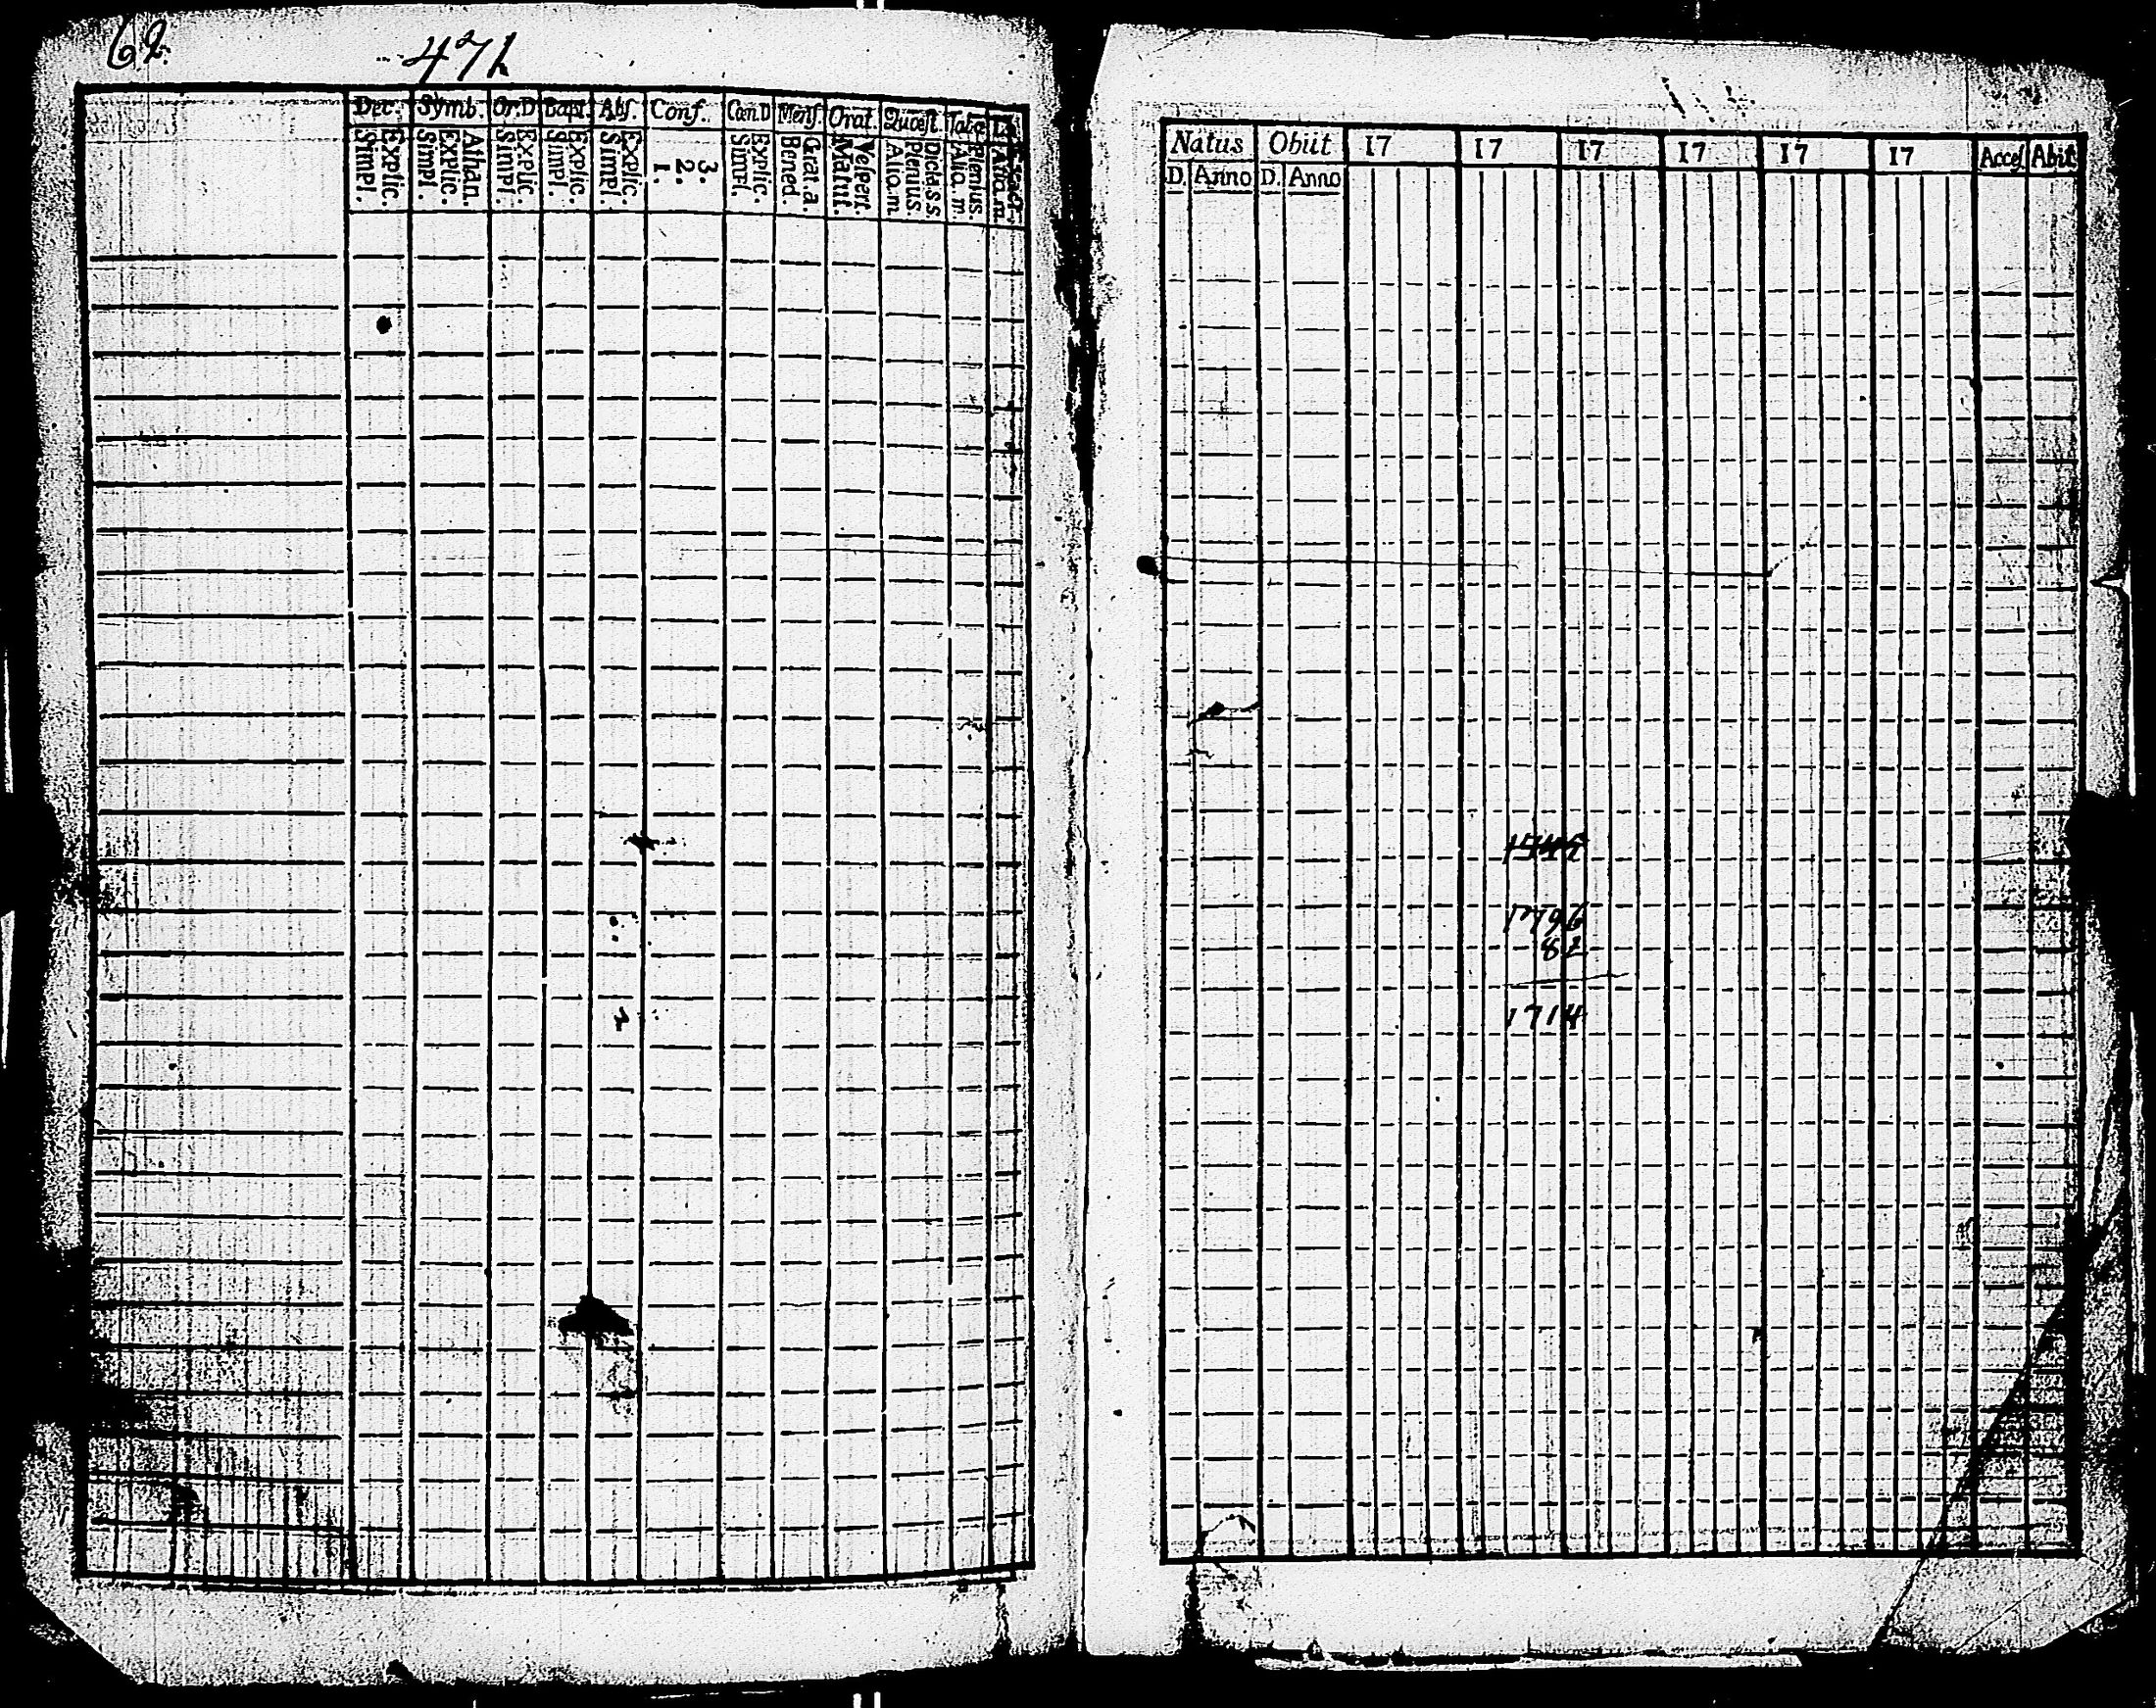 62.
471
Dec. Symb. Or.D Bapt. Abſ. Conf. Cœn.D Menſ. Orat. Quæſt. Tabæ
Explic. Simpl.
Athan. Explic. Simpl.
Explic. Simpl.
Explic. Simpl.
Explic. Simpl.
3. 2. 1.
Explic. Simpl.
Grat.a. Bened.
Veſpert. Matut.
Dicta.s.s. Plenius. Aliq.m.
Plenius. Aliq.m.
Natus Obiit 17 17 17 17 17 17 Acceſ Abiit
D. Anno D. Anno
1796
82
1714